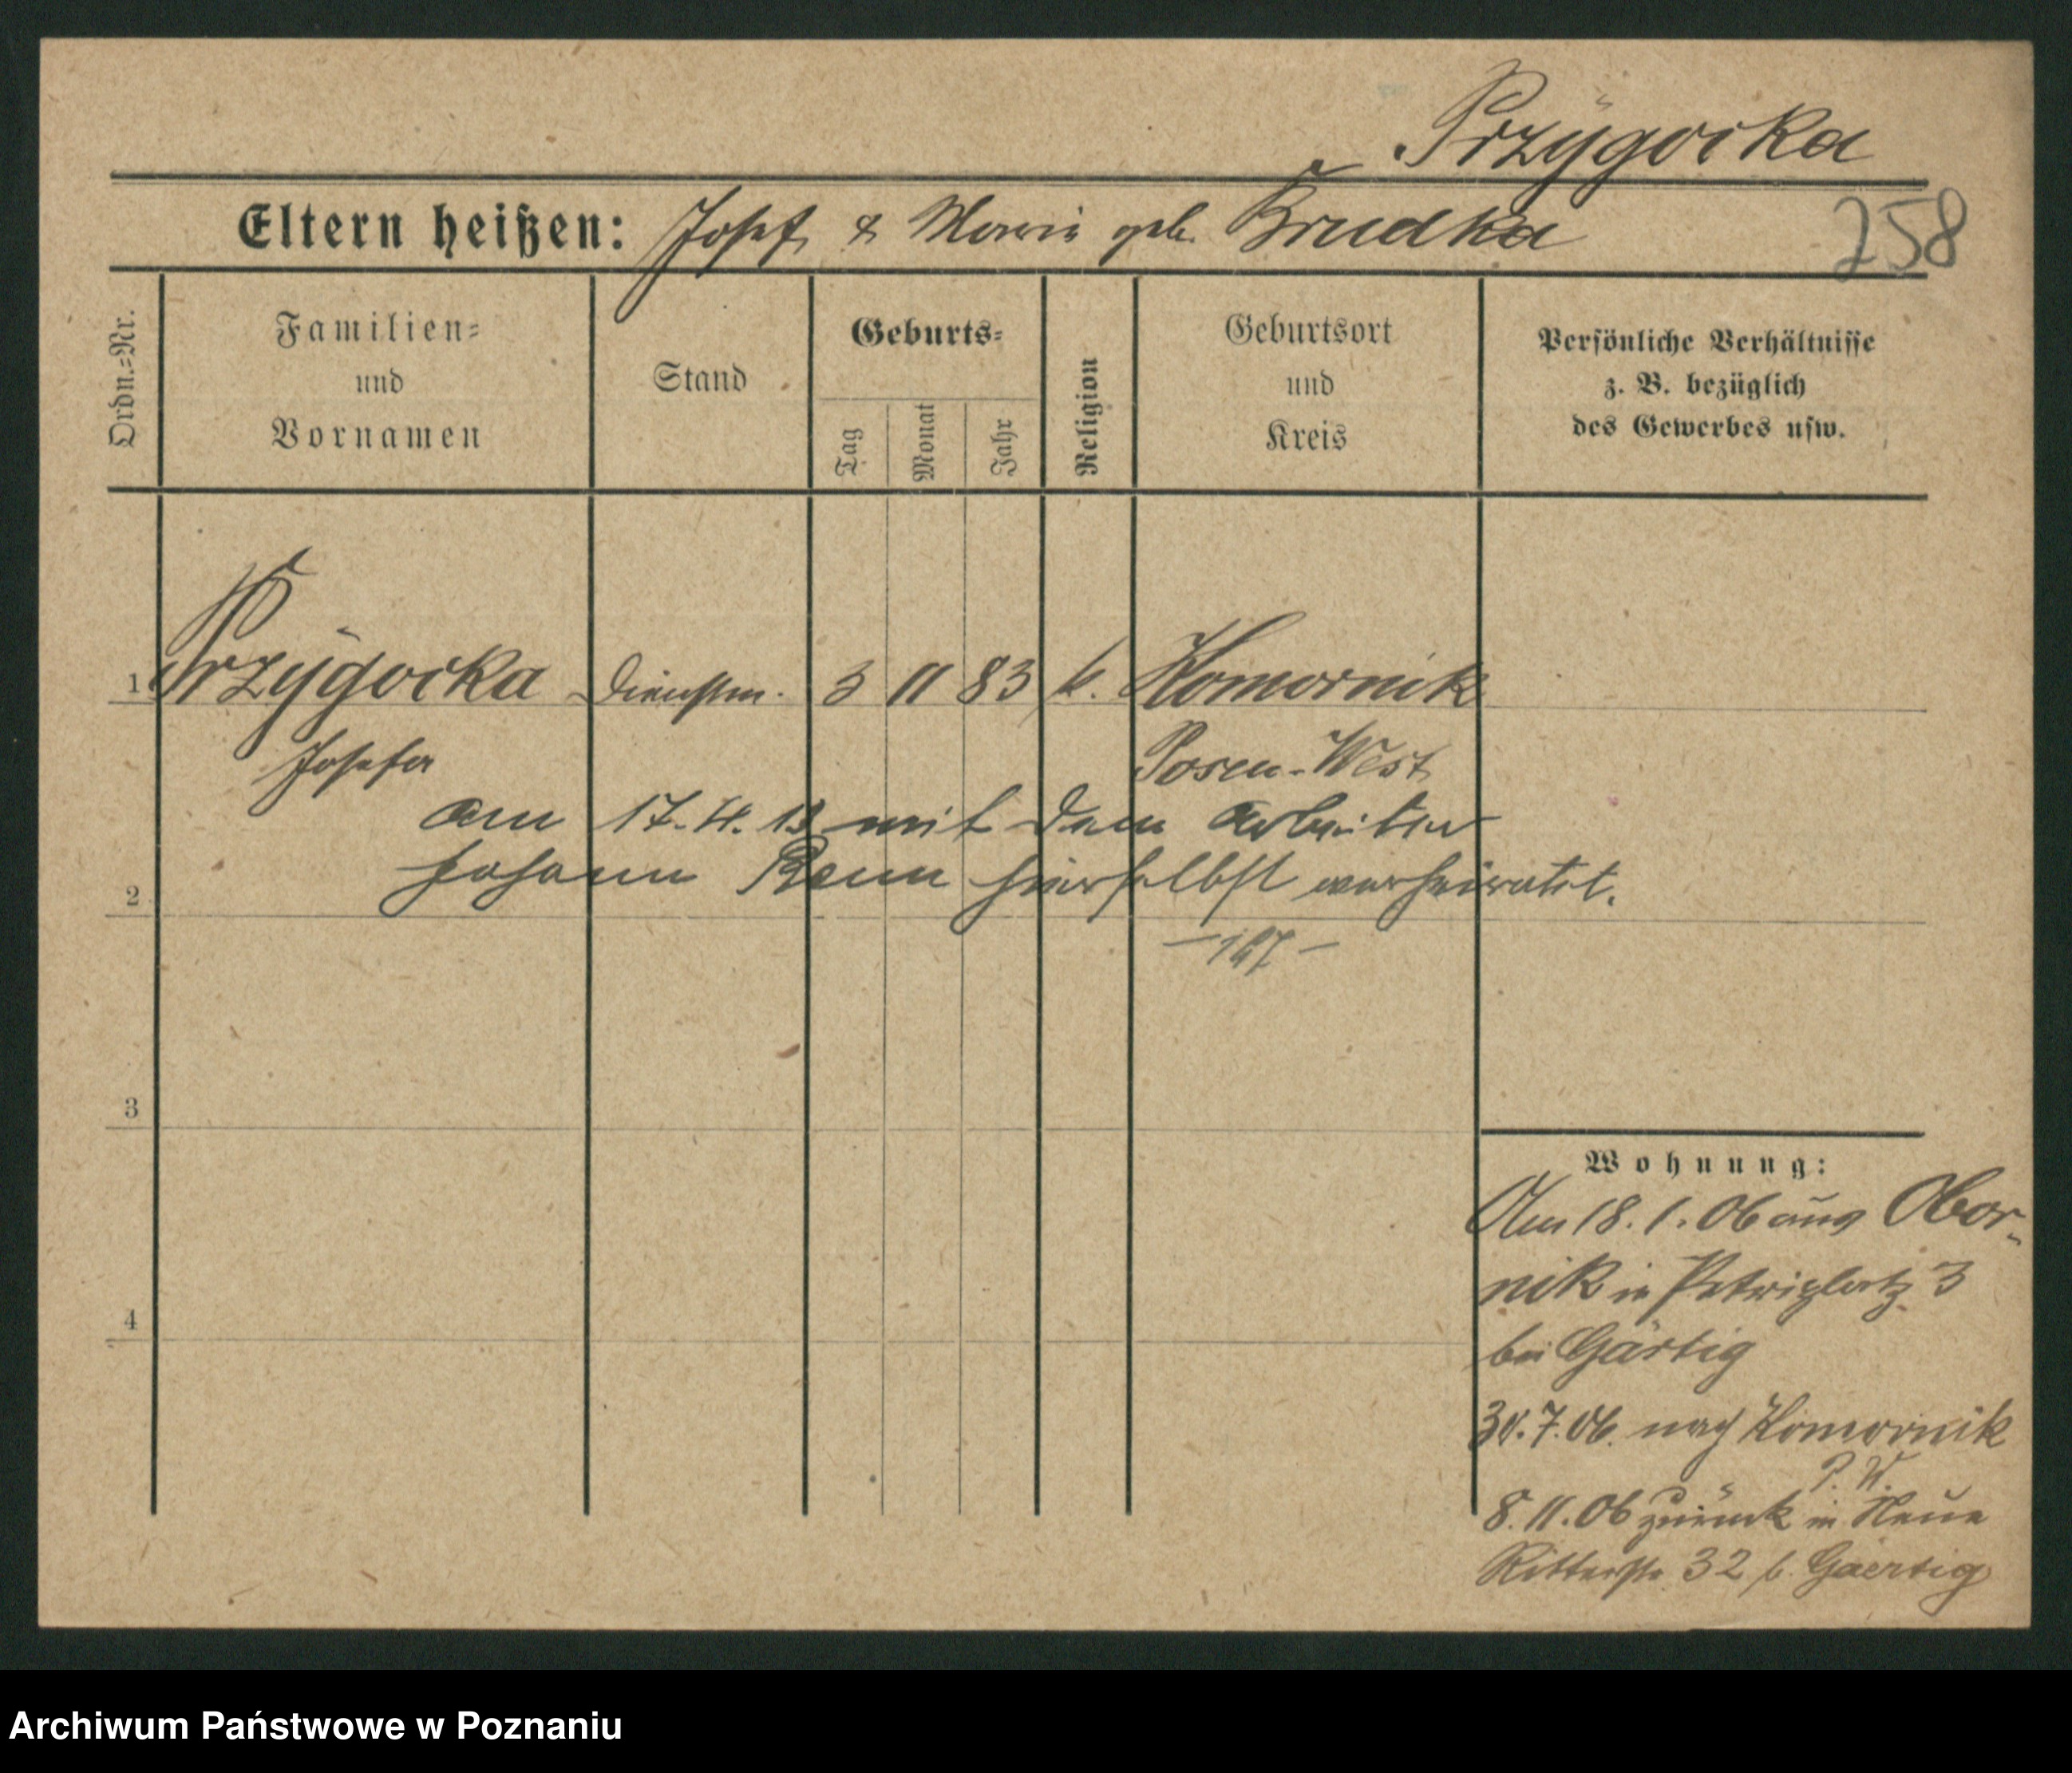 Przygocka
Eltern heißen: Josef & Maria geb. Brudka
258
Ordn.=Nr.
Familien= und Vornamen
Stand
Geburts=
Tag Monat Jahr
Religion
Geburtsort und Kreis
Persönliche Verhältnisse
z. B. bezüglich
des Gewerbes usw.
1 Przygocka Dienstm. 3 11 83 k. Komornik
Josefa Posen-West
am 17.4.13 mit dem Arbeiter
2 Johann Benn hierselbst verheiratet.
— 167 —
3
Wohnung:
Am 18.1.06 aus Obor-
nik in Petriplatz 3
4
bei Gärtig
30.7.06. nach Komornik
P. W.
8.11.06 zurück in Neue
Ritterstr. 32 b. Gaertig
Archiwum Państwowe w Poznaniu